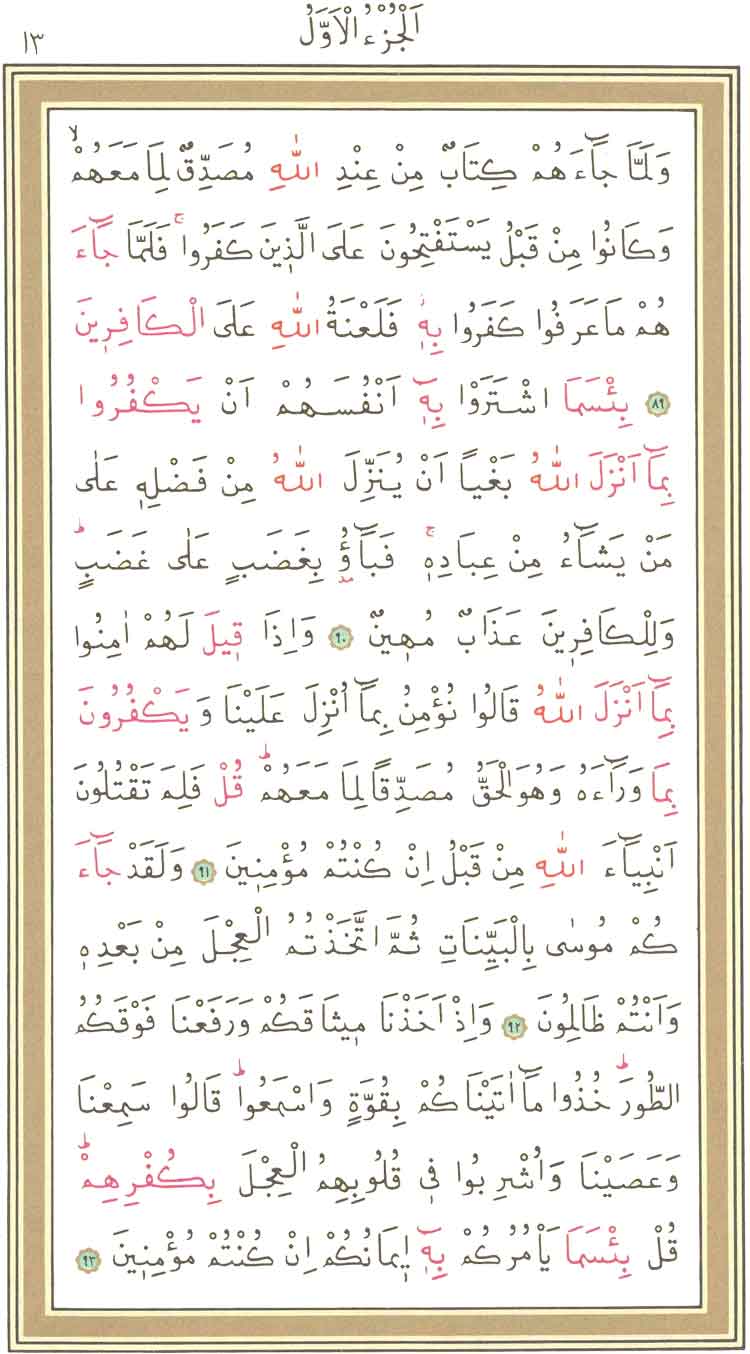 اَلْجُزْءُ الْاَوَّلُ
١٣
وَلَمَّا جَٓاءَ هُمْ كِتَابٌ مِنْ عِنْدِ اللّٰهِ مُصَدِّقٌ لِمَا مَعَهُمْۙ
وَكَانُوا مِنْ قَبْلُ يَسْتَفْتِحُونَ عَلَى الَّذ۪ينَ كَفَرُواۚ فَلَمَّا جَٓاءَ
هُمْ مَا عَرَفُوا كَفَرُوا بِه۪ۘ فَلَعْنَةُ اللّٰهِ عَلَى الْكَافِر۪ينَ
٨٩ بِئْسَمَا اشْتَرَوْا بِه۪ٓ اَنْفُسَهُمْ اَنْ يَكْفُرُوا
بِمَٓا اَنْزَلَ اللّٰهُ بَغْياً اَنْ يُنَزِّلَ اللّٰهُ مِنْ فَضْلِه۪ عَلٰى
مَنْ يَشَٓاءُ مِنْ عِبَادِه۪ۚ فَبَٓاؤُ۫ بِغَضَبٍ عَلٰى غَضَبٍۜ
وَلِلْكَافِر۪ينَ عَذَابٌ مُه۪ينٌ ٩٠ وَاِذَا ق۪يلَ لَهُمْ اٰمِنُوا
بِمَٓا اَنْزَلَ اللّٰهُ قَالُوا نُؤْمِنُ بِمَٓا اُنْزِلَ عَلَيْنَا وَ يَكْفُرُونَ
بِمَا وَرَٓاءَهُ وَهُوَ الْحَقُّ مُصَدِّقاً لِمَا مَعَهُمْۜ قُلْ فَلِمَ تَقْتُلُونَ
اَنْبِيَٓاءَ اللّٰهِ مِنْ قَبْلُ اِنْ كُنْتُمْ مُؤْمِن۪ينَ ٩١ وَلَقَدْ جَٓاءَ
كُمْ مُوسٰى بِالْبَيِّنَاتِ ثُمَّ اتَّخَذْتُمُ الْعِجْلَ مِنْ بَعْدِه۪
وَاَنْتُمْ ظَالِمُونَ ٩٢ وَاِذْ اَخَذْنَا م۪يثَاقَكُمْ وَرَفَعْنَا فَوْقَكُمُ
الطُّورَۜ خُذُوا مَٓا اٰتَيْنَاكُمْ بِقُوَّةٍ وَاسْمَعُواۜ قَالُوا سَمِعْنَا
وَعَصَيْنَا وَاُشْرِبُوا ف۪ي قُلُوبِهِمُ الْعِجْلَ بِكُفْرِهِمْۜ
قُلْ بِئْسَمَا يَأْمُرُكُمْ بِه۪ٓ ا۪يمَانُكُمْ اِنْ كُنْتُمْ مُؤْمِن۪ينَ ٩٣